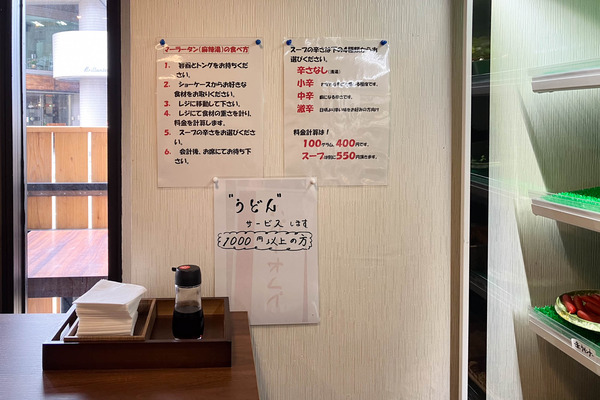 マーラータン(麻辣湯)の食べ方
1. 容器とトングをお持ちくだ
さい。
2. ショーケースからお好きな
食材をお取りください。
3. レジに移動して下さい。
4. レジにて食材の重さを計り、
料金を計算します。
5. スープの辛さをお選びくださ
い。
6. 会計後、お席にてお待ち下
さい。
スープの辛さは下の4種類からお
選びください。
辛さなし(清湯)
小辛
中辛 癖になる辛さです。
激辛
料金計算は!
100グラム、400円です。
スープは別に550円頂きます。
"うどん"
サービスします
1000円以上の方